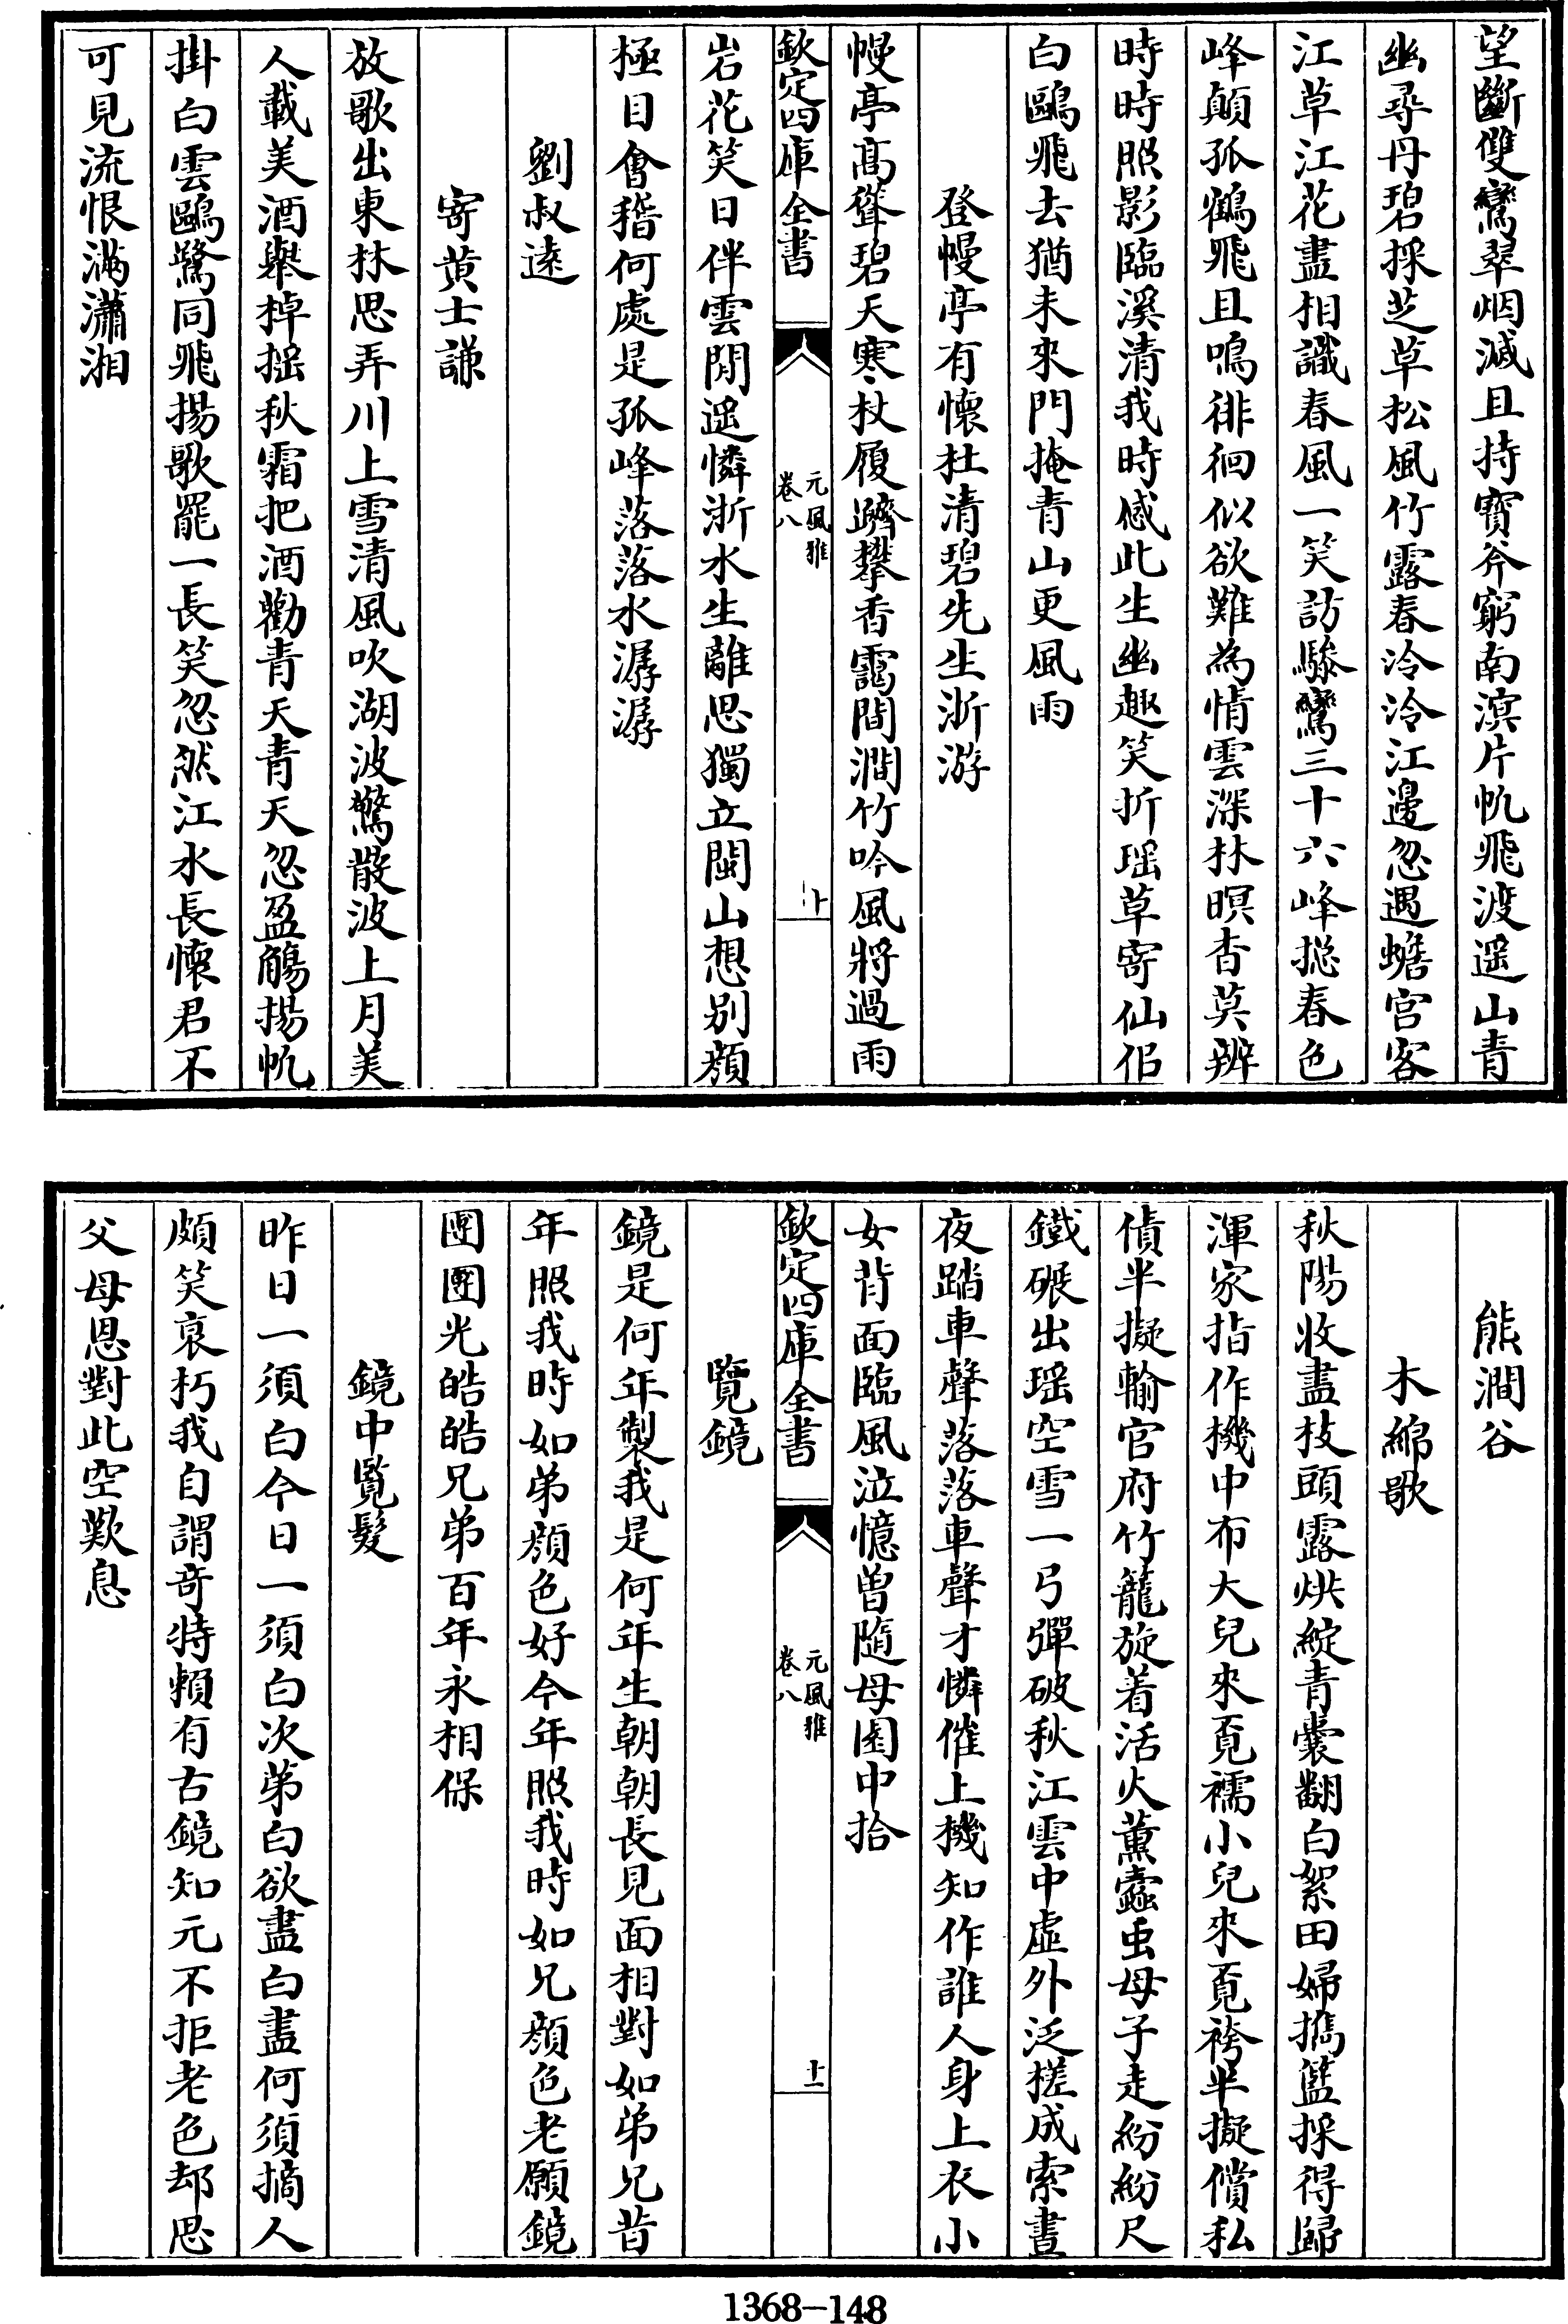 望斷雙鸞翠烟滅且持寳斧窮南溟片帆飛渡遥山青
幽尋丹碧採芝草松風竹露春泠泠江邊忽遇蟾宫客
江草江花盡相識春風一笑訪驂鸞三十六峰摠春色
峰巔孤鶴飛且鳴徘徊似欲難為情雲深林暝杳莫辨
時時照影臨溪清我時感此生幽趣笑折瑶草寄仙侣
白鷗飛去猶未來門掩青山更風雨
登幔亭有懷杜清碧先生浙游
幔亭髙聳碧天寒杖履躋攀香靄間澗竹吟風將過雨
欽定四庫全書
元風雅
卷八
十
岩花笑日伴雲閒遥憐浙水生離思獨立閩山想别顔
極目會稽何處是孤峰落落水潺潺
劉叔逺
寄黄士謙
放歌出東林思弄川上雪清風吹湖波驚散波上月美
人載美酒舉棹揺秋霜把酒勸青天青天忽盈觴揚帆
掛白雲鷗鷺同飛揚歌罷一長笑忽然江水長懐君不
可見流恨滿瀟湘
熊澗谷
木綿歌
秋陽收盡枝頭露烘綻青囊翻白絮田婦擕籃採得歸
渾家指作機中布大兒來覔襦小兒來覔袴半擬償私
債半擬輸官府竹籠旋着活火薰蠧虫母子走紛紛尺
鐵碾出瑶空雪一弓彈破秋江雲中虚外泛搓成索晝
夜踏車聲落落車聲才憐催上機知作誰人身上衣小
女背面臨風泣憶曽隨母園中拾
欽定四庫全書
元風雅
卷八
十一
覽鏡
鏡是何年製我是何年生朝朝長見面相對如弟兄昔
年照我時如弟顔色好今年照我時如兄顔色老願鏡
團團光皓皓兄弟百年永相保
鏡中覽髪
昨日一須白今日一須白次第白欲盡白盡何須摘人
頗笑衰朽我自謂竒特頼有古鏡知元不拒老色却思
父母恩對此空歎息
1368-148